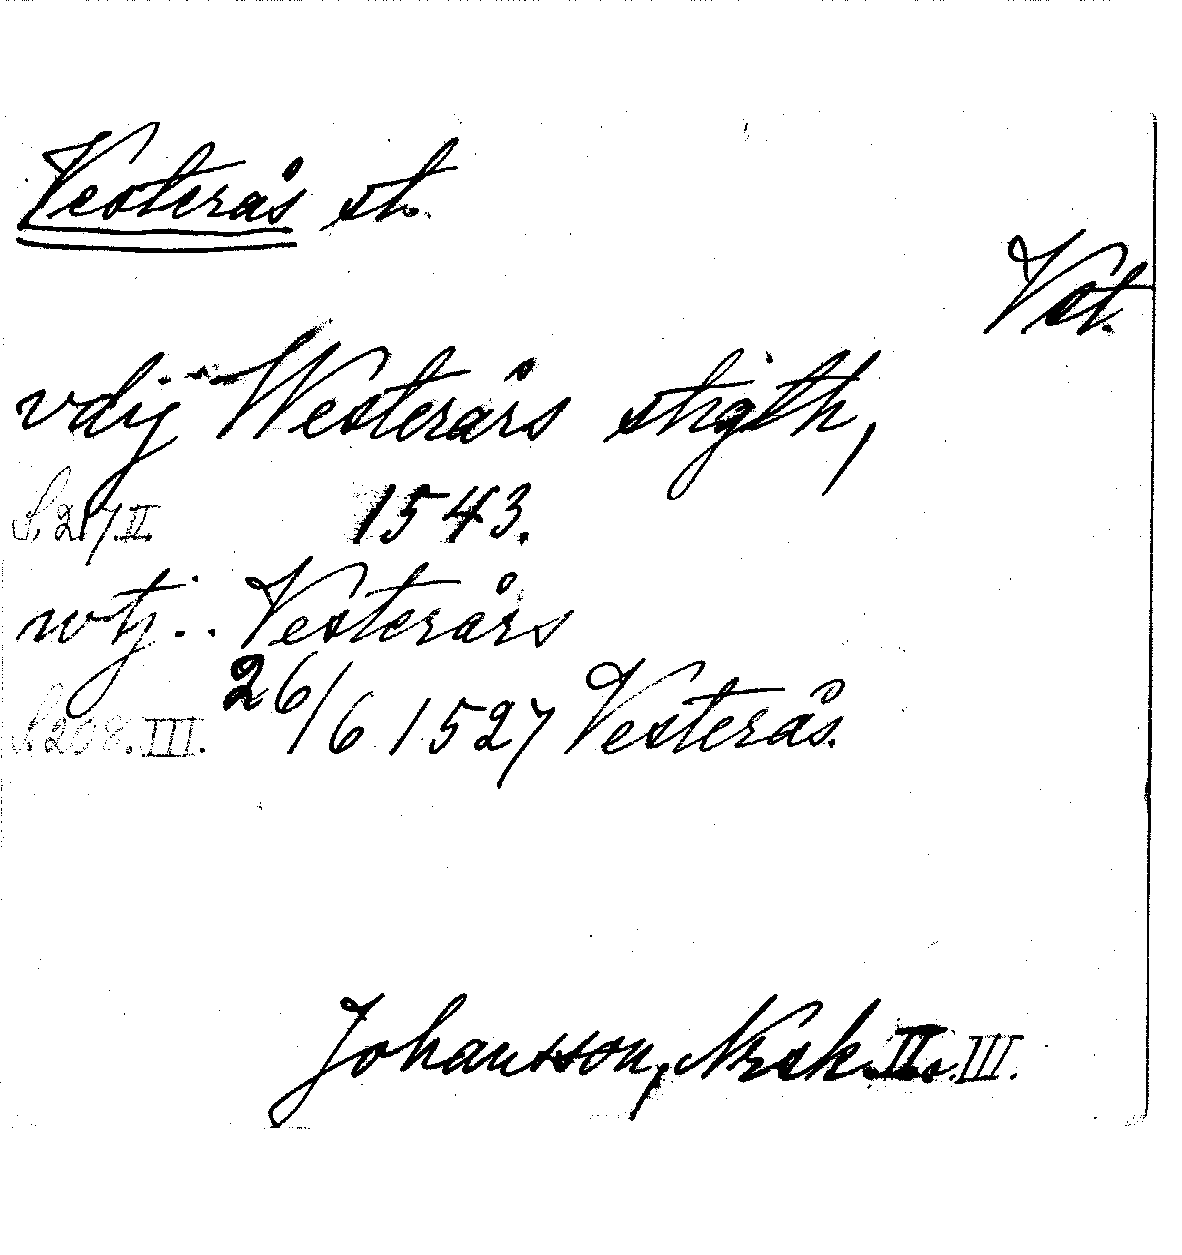 Vesterås st.
Vst.
vdij Westerårs stigth,
S. 27. II. 1543.
wtj.. Vesterårs
26/6 1527 Vesterås.
S. 208. III.
Johansson, Nrsk. II. III.